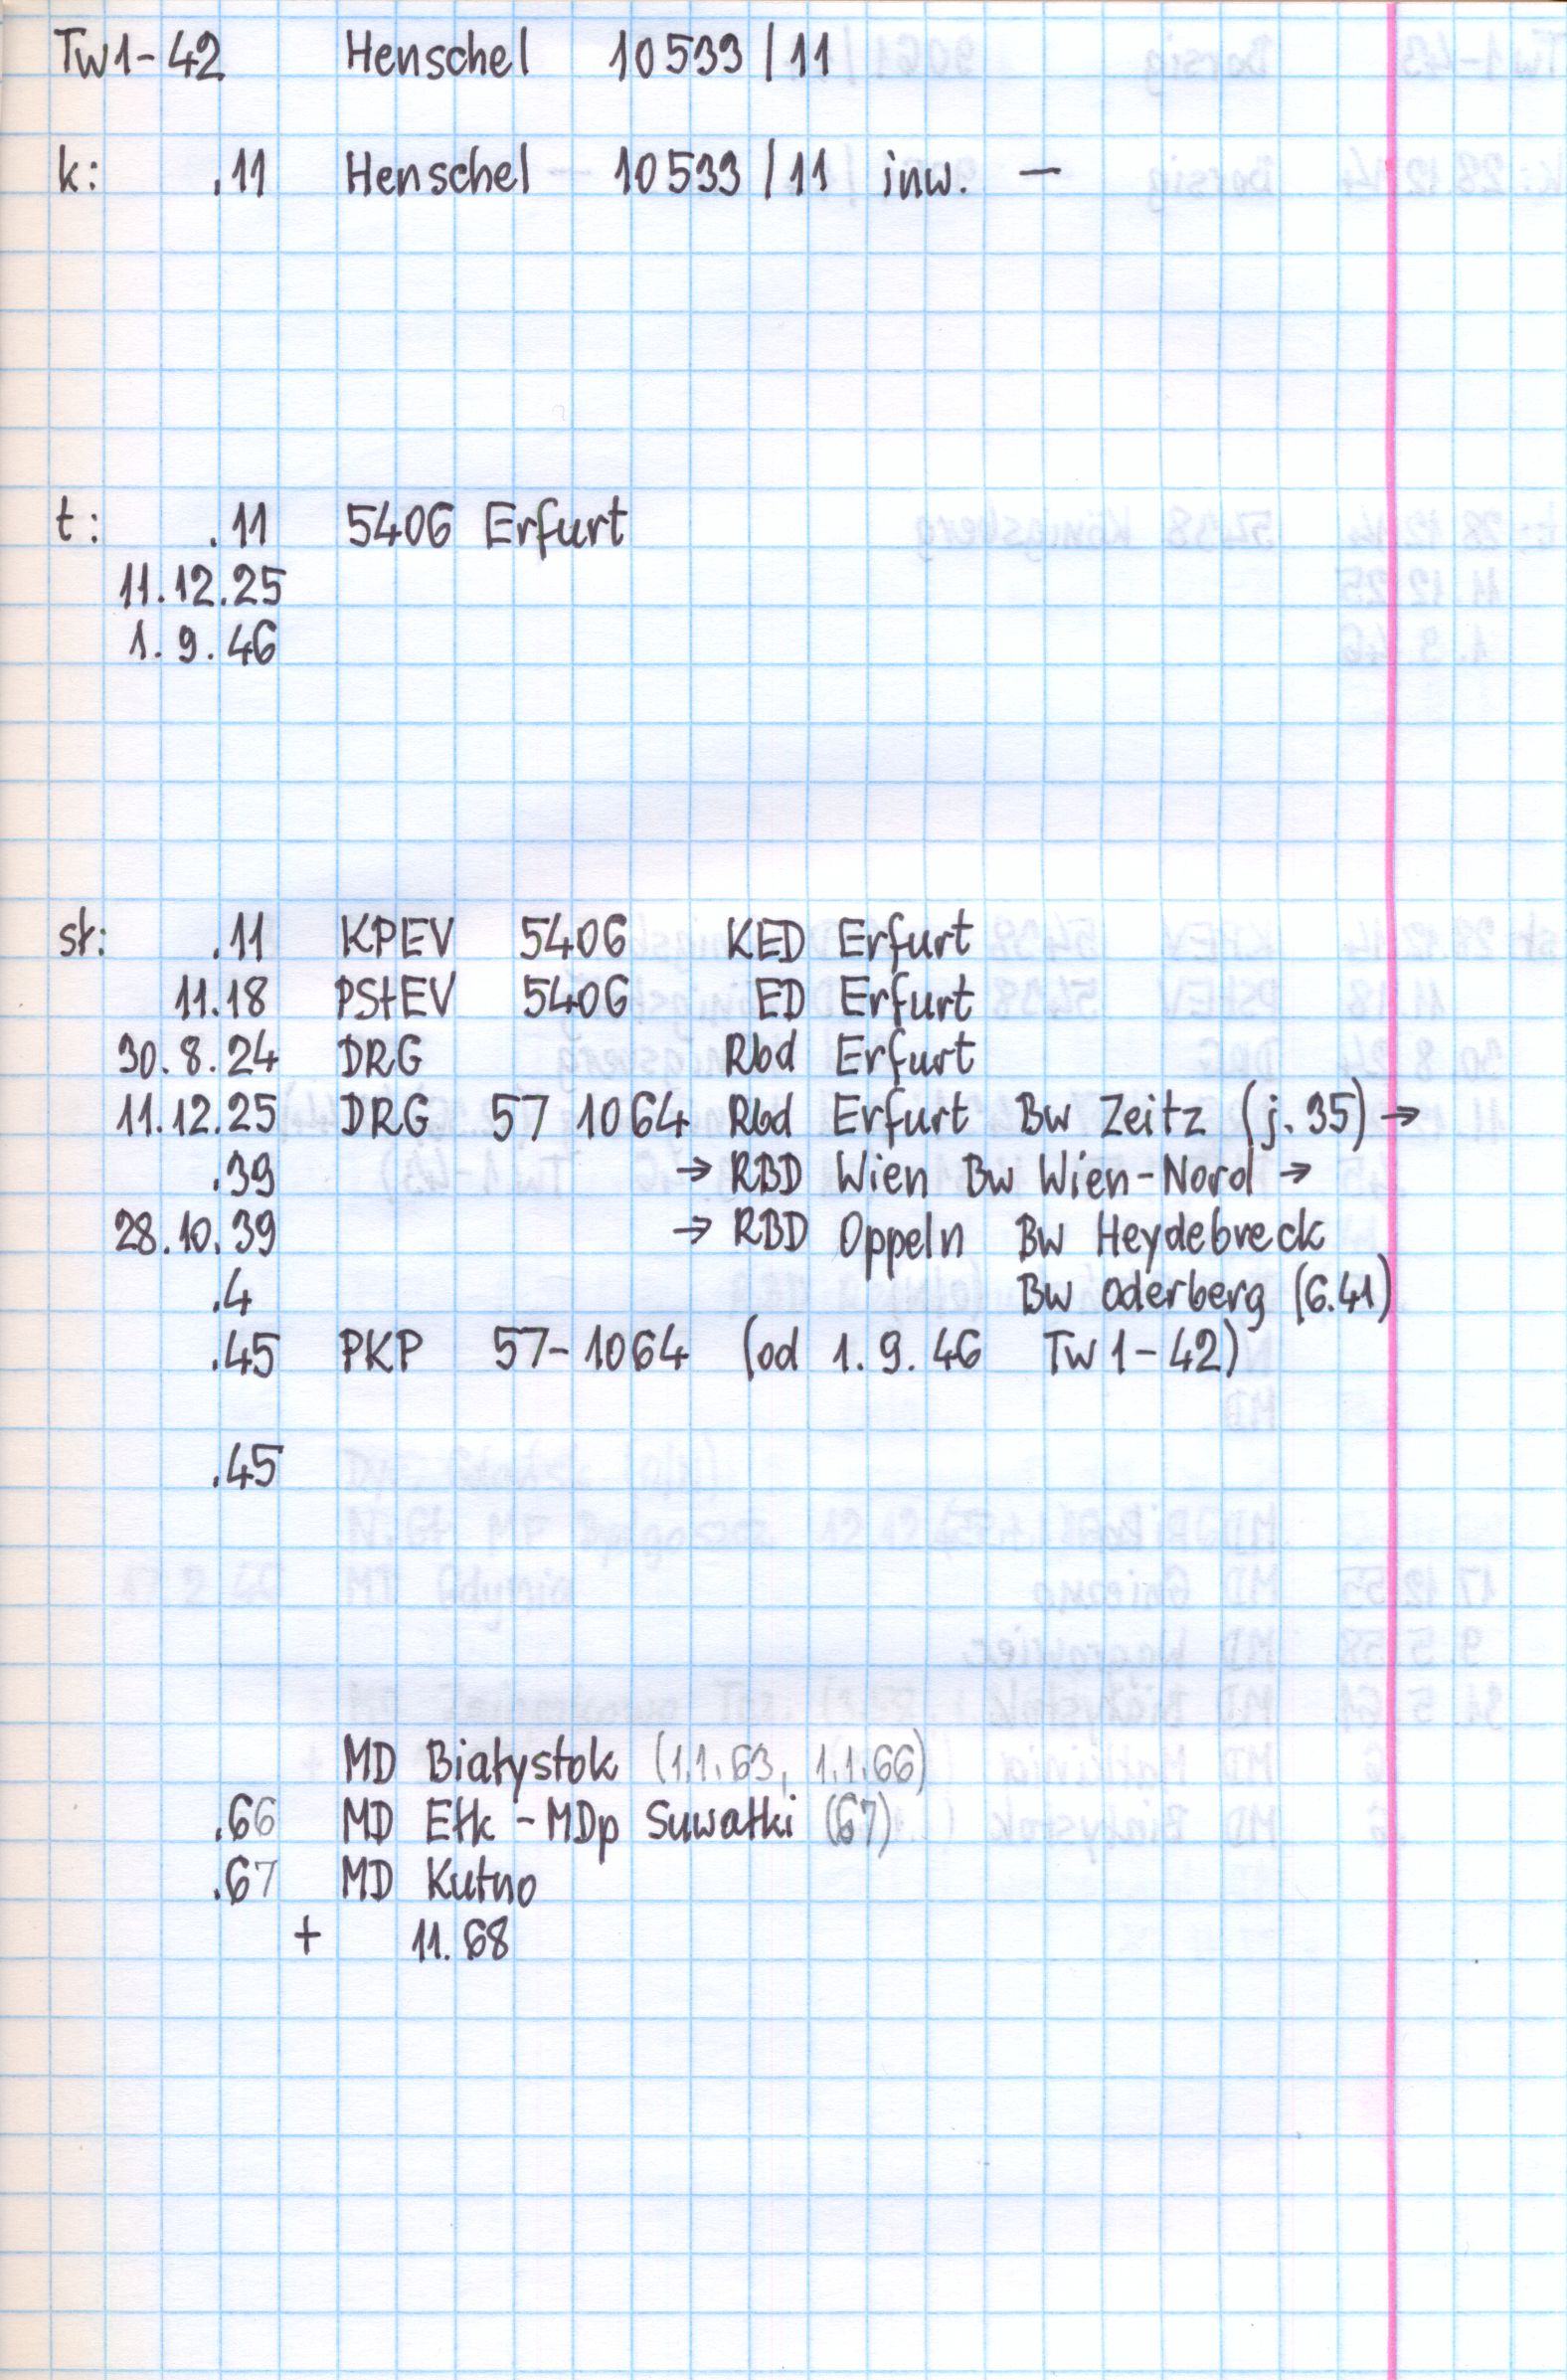 Tw1-42 Henschel 10533/11
k: .11 Henschel 10533/11 inw. –
t: .11 5406 Erfurt
11.12.25
1.9.46
st: .11 KPEV 5406 KED Erfurt
11.18 PStEV 5406 ED Erfurt
30.8.24 DRG Rbd Erfurt
11.12.25 DRG 57 1064 Rbd Erfurt Bw Zeitz (j.35) →
.39 → RBD Wien Bw Wien-Nord →
28.10.39 → RBD Oppeln Bw Heydebreck
.4 Bw Oderberg (6.41)
.45 PKP 57-1064 (od 1.9.46 Tw1-42)
.45
MD Białystok (1.1.63, 1.1.66)
.66 MD Ełk - MDp Suwałki (67)
.67 MD Kutno
+ 11.68